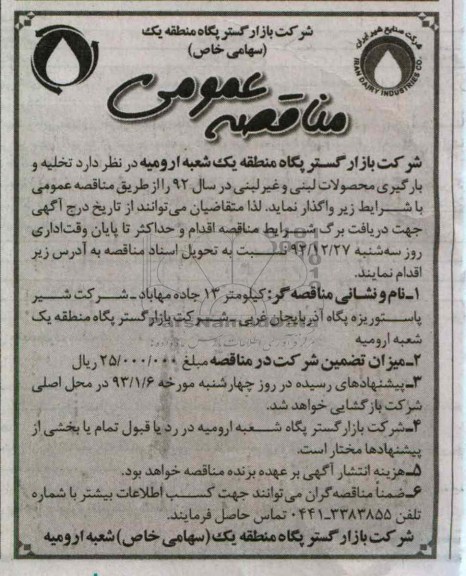 شرکت بازار گستر پگاه منطقه یک
(سهامی خاص)
شرکت صنایع شیر ایران
IRAN DAIRY INDUSTRIES CO.
مناقصه عمومی
شرکت بازار گستر پگاه منطقه یک شعبه ارومیه در نظر دارد تخلیه و
بارگیری محصولات لبنی و غیر لبنی در سال ۹۲ را از طریق مناقصه عمومی
با شرایط زیر واگذار نماید. لذا متقاضیان می‌توانند از تاریخ درج آگهی
جهت دریافت برگ شرایط مناقصه اقدام و حداکثر تا پایان وقت اداری
روز سه‌شنبه ۹۲/۱۲/۲۷ نسبت به تحویل اسناد مناقصه به آدرس زیر
اقدام نمایند.
۱ـ نام و نشانی مناقصه گر: کیلومتر ۱۳ جاده مهاباد ـ شرکت شیر
پاستوریزه پگاه آذربایجان غربی ـ شرکت بازار گستر پگاه منطقه یک
شعبه ارومیه
۲ـ میزان تضمین شرکت در مناقصه مبلغ ۲۵/۰۰۰/۰۰۰ ریال
۳ـ پیشنهادهای رسیده در روز چهارشنبه مورخه ۹۳/۱/۶ در محل اصلی
شرکت بازگشایی خواهد شد.
۴ـ شرکت بازار گستر پگاه شعبه ارومیه در رد یا قبول تمام یا بخشی از
پیشنهادها مختار است.
۵ـ هزینه انتشار آگهی بر عهده برنده مناقصه خواهد بود.
۶ـ ضمناً مناقصه گران می‌توانند جهت کسب اطلاعات بیشتر با شماره
تلفن ۳۳۸۳۸۵۵-۰۴۴۱ تماس حاصل فرمایند.
شرکت بازار گستر پگاه منطقه یک (سهامی خاص) شعبه ارومیه